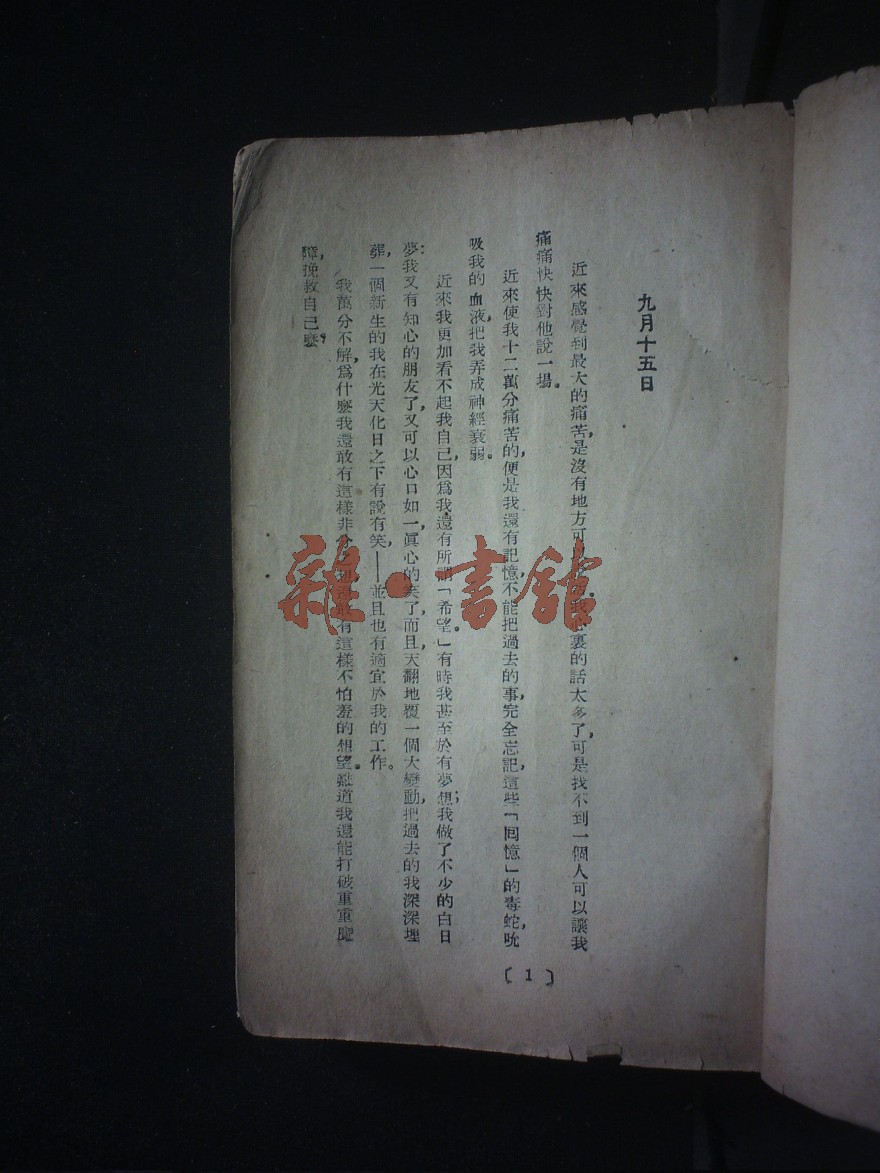 九月十五日
近來感覺到最大的痛苦,是沒有地方可 我心裏的話太多了,可是找不到一個人可以讓我
痛痛快快對他說一場。
近來使我十二萬分痛苦的,便是我還有記憶,不能把過去的事,完全忘記,這些「回憶」的毒蛇,吮
吸我的血液,把我弄成神經衰弱。
近來我更加看不起我自己,因爲我還有所謂「希望」。有時我甚至於有夢想,我做了不少的白日
夢:我又有知心的朋友了,又可以心口如一,眞心的笑了,而且,天翻地覆一個大變動,把過去的我深深埋
葬,一個新生的我在光天化日之下有說有笑,——並且也有適宜於我的工作。
我萬分不解,爲什麼我還敢有這樣非分之想,還敢有這樣不怕羞的想望。難道我還能打破重重魔
障,挽救自己麼?
(1)
雜·書館